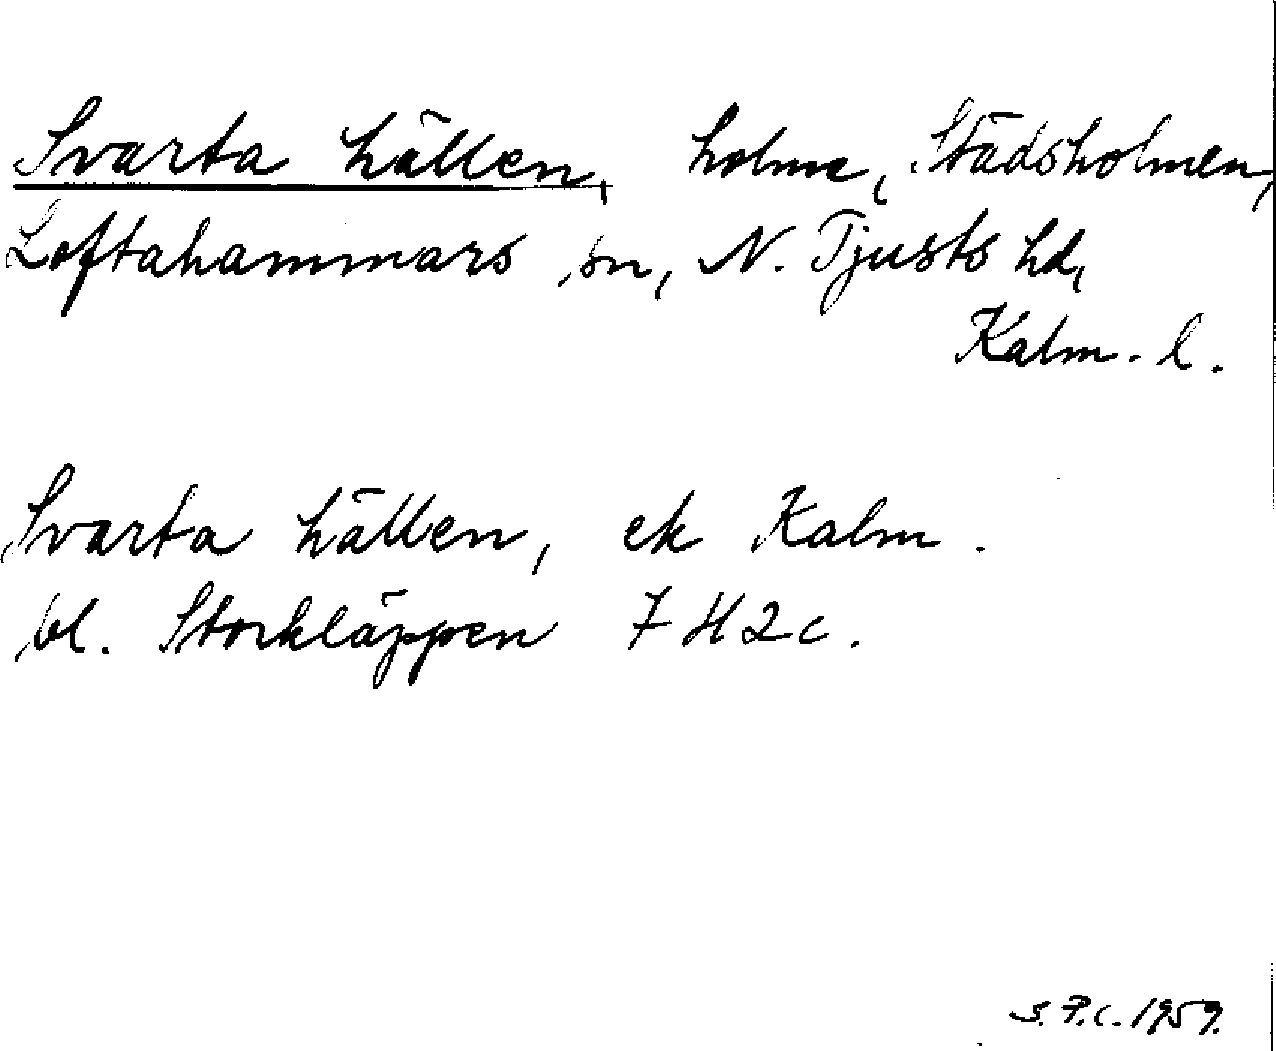 Svarta hällen, holme, Städsholmen,
Loftahammars sn, N. Tjusts hd,
Kalm. l.
Svarta hällen, ek Kalm.
bl. Storkläppen 7H2c.
S.P.C. 1959.